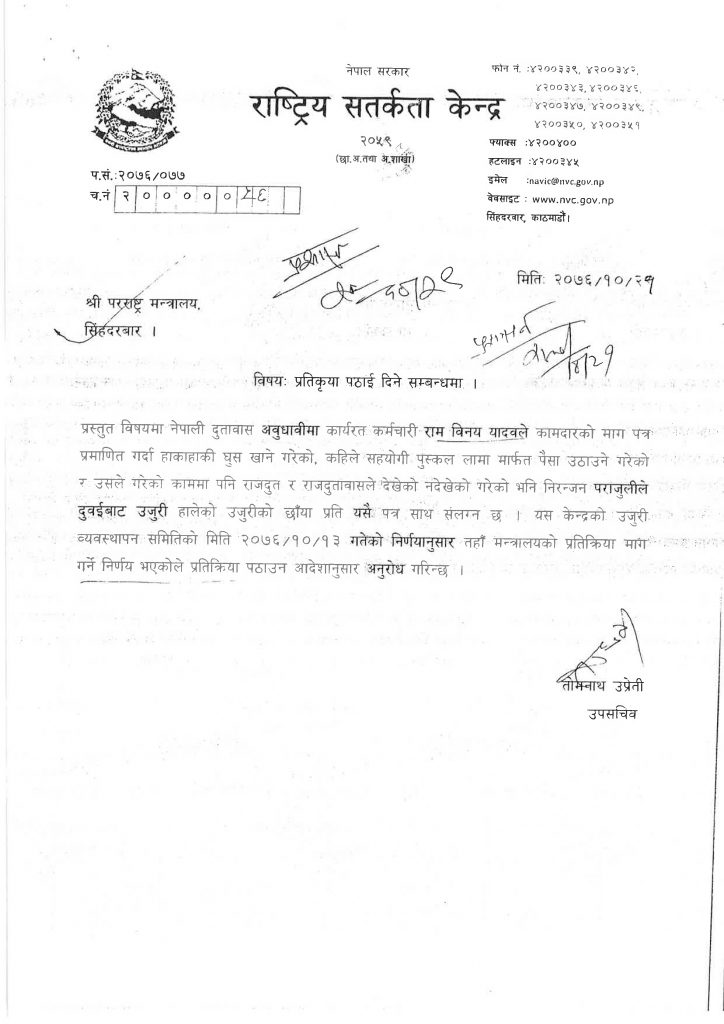 नेपाल सरकार
राष्ट्रिय सतर्कता केन्द्र
२०५९
(छा.अ.तथा अ.शाखा)
फोन नं. :४२००३३९, ४२००३४२,
४२००३४३,४२००३४६,
४२००३४७, ४२००३४९,
४२००३५०, ४२००३५१
फ्याक्स :४२००४००
हटलाइन :४२००३४५
इमेल :navic@nvc.gov.np
वेबसाइट : www.nvc.gov.np
सिंहदरवार, काठमाडौं।
प.सं.:२०७६/०७७
च.नं २०००००
मितिः २०७६/१०/२१
श्री परराष्ट्र मन्त्रालय,
सिंहदरबार ।
विषयः प्रतिकृया पठाई दिने सम्बन्धमा ।
प्रस्तुत विषयमा नेपाली दुतावास अवुधावीमा कार्यरत कर्मचारी राम विनय यादवले कामदारको माग पत्र
प्रमाणित गर्दा हाकाहाकी घुस खाने गरेको, कहिले सहयोगी पुस्कल लामा मार्फत पैसा उठाउने गरेको
र उसले गरेको काममा पनि राजदुत र राजदुतावासले देखेको नदेखेको गरेको भनि निरन्जन पराजुलीले
दुवईबाट उजुरी हालेको उजुरीको छाँया प्रति यसै पत्र साथ संलग्न छ । यस केन्द्रको उजुरी
व्यवस्थापन समितिको मिति २०७६/१०/१३ गतेको निर्णयानुसार तहाँ मन्त्रालयको प्रतिक्रिया माग
गर्ने निर्णय भएकोले प्रतिक्रिया पठाउन आदेशानुसार अनुरोध गरिन्छ ।
तोमनाथ उप्रेती
उपसचिव